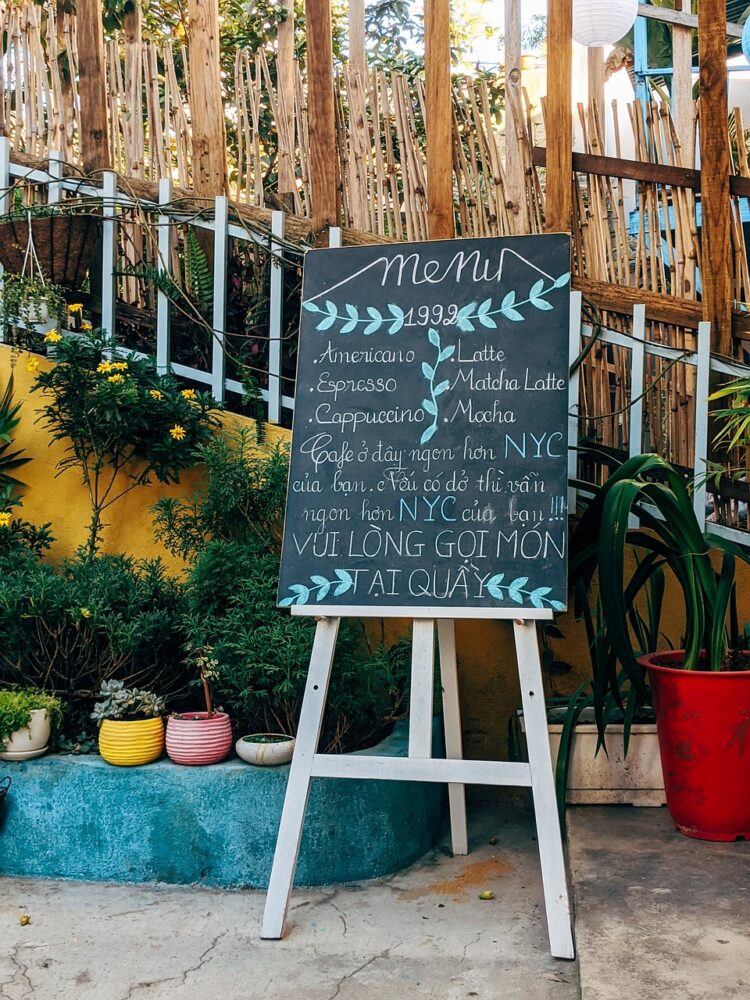 Menu
1992
.Americano .Latte
.Espresso .Matcha Latte
.Cappuccino .Mocha
Cafe ở đây ngon hơn NYC
của bạn. Nếu có dở thì vẫn
ngon hơn NYC của bạn !!!
VUI LÒNG GỌI MÓN
TẠI QUẦY